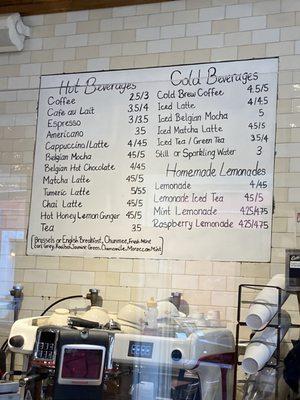 Hot Beverages
Coffee 2.5/3
Cafe au Lait 3.5/4
Espresso 3/3.5
Americano 3.5
Cappuccino/Latte 4/4.5
Belgian Mocha 4.5/5
Belgian Hot Chocolate 4/4.5
Matcha Latte 4.5/5
Tumeric Latte 5/5.5
Chai Latte 4.5/5
Hot Honey Lemon Ginger 4.5/5
Tea 3.5
Brussels or English Breakfast, Chunmee, Fresh Mint
Earl Grey, Rooibos, Jasmine Green, Chamomile, Moroccan Mint
Cold Beverages
Cold Brew Coffee 4.5/5
Iced Latte 4/4.5
Iced Belgian Mocha 5
Iced Matcha Latte 4.5/5
Iced Tea / Green Tea 3.5/4
Still or Sparkling Water 3
Homemade Lemonades
Lemonade 4/4.5
Lemonade Iced Tea 4.5/5
Mint Lemonade 4.25/4.75
Raspberry Lemonade 4.25/4.75